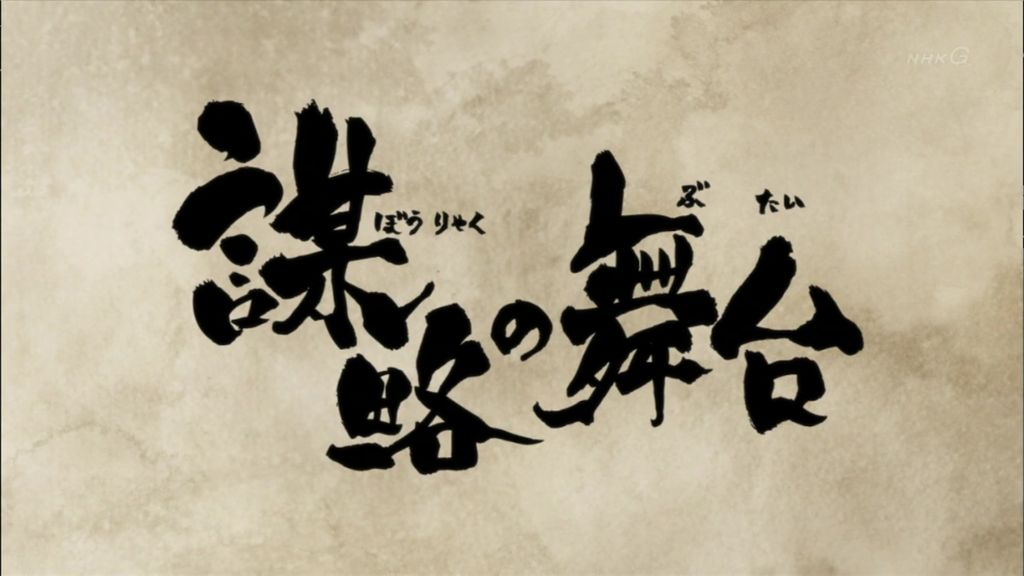 NHK G
謀略の舞台
ぼうりゃく
ぶたい